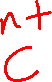 n+
C